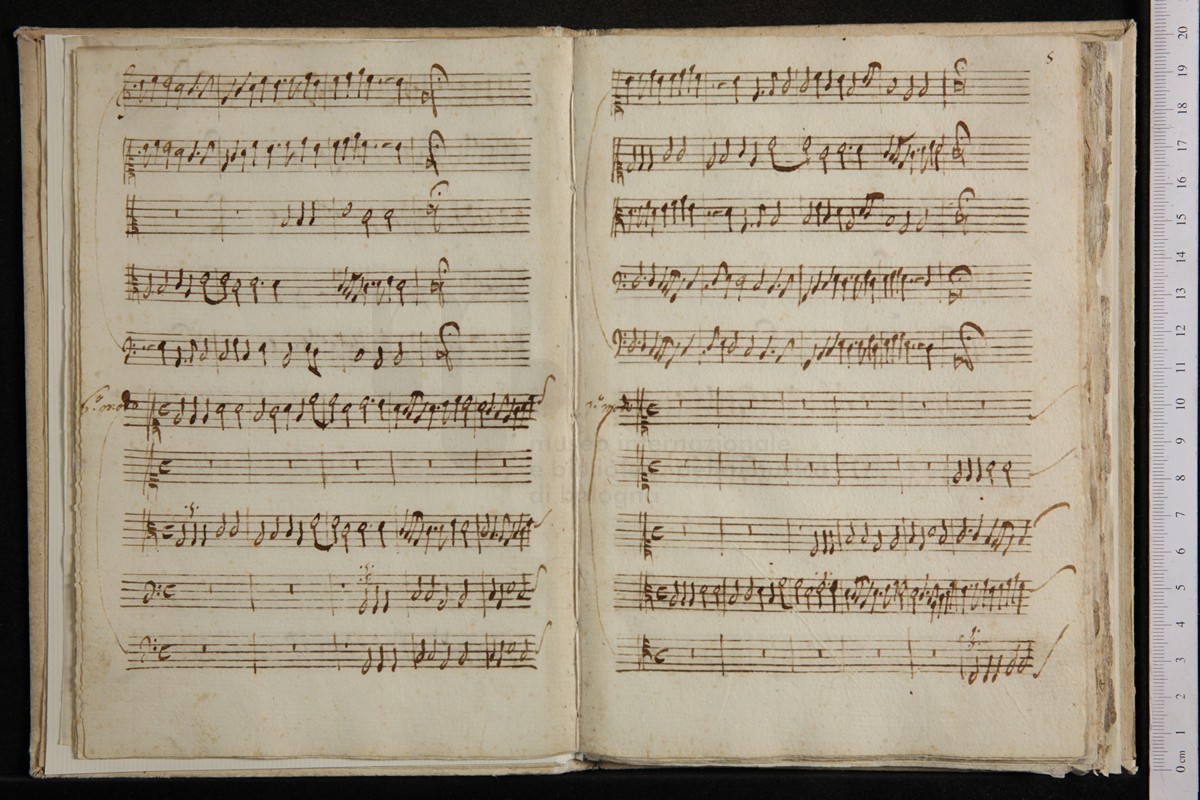 5
6.º modo
7.º modo
museo internazionale
e biblioteca della musica
di bologna
20
19
18
17
16
15
14
13
12
11
10
9
8
7
6
5
4
3
2
1
0 cm